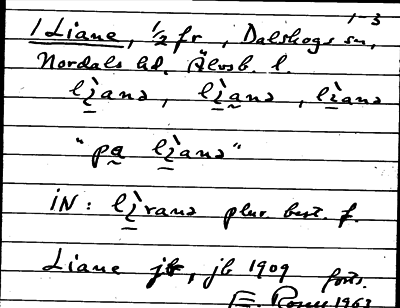 1-3
1 Liane, ½ fr, Dalskogs sn,
Nordals hd. Älvsb. l.
lìana, lìana, lìana
"pa lìana"
iN: lìrana plur. best. f.
Liane jb, jb 1909 forts.
1963